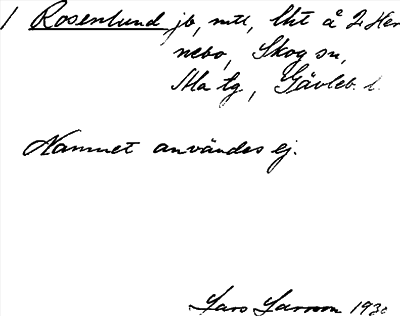 1 Rosenlund jb, mtl, lht å 2 Her
nebo, Skog sn,
Ma tg, Gävleb. l.
Namnet användes ej.
Lars Larsson 1930